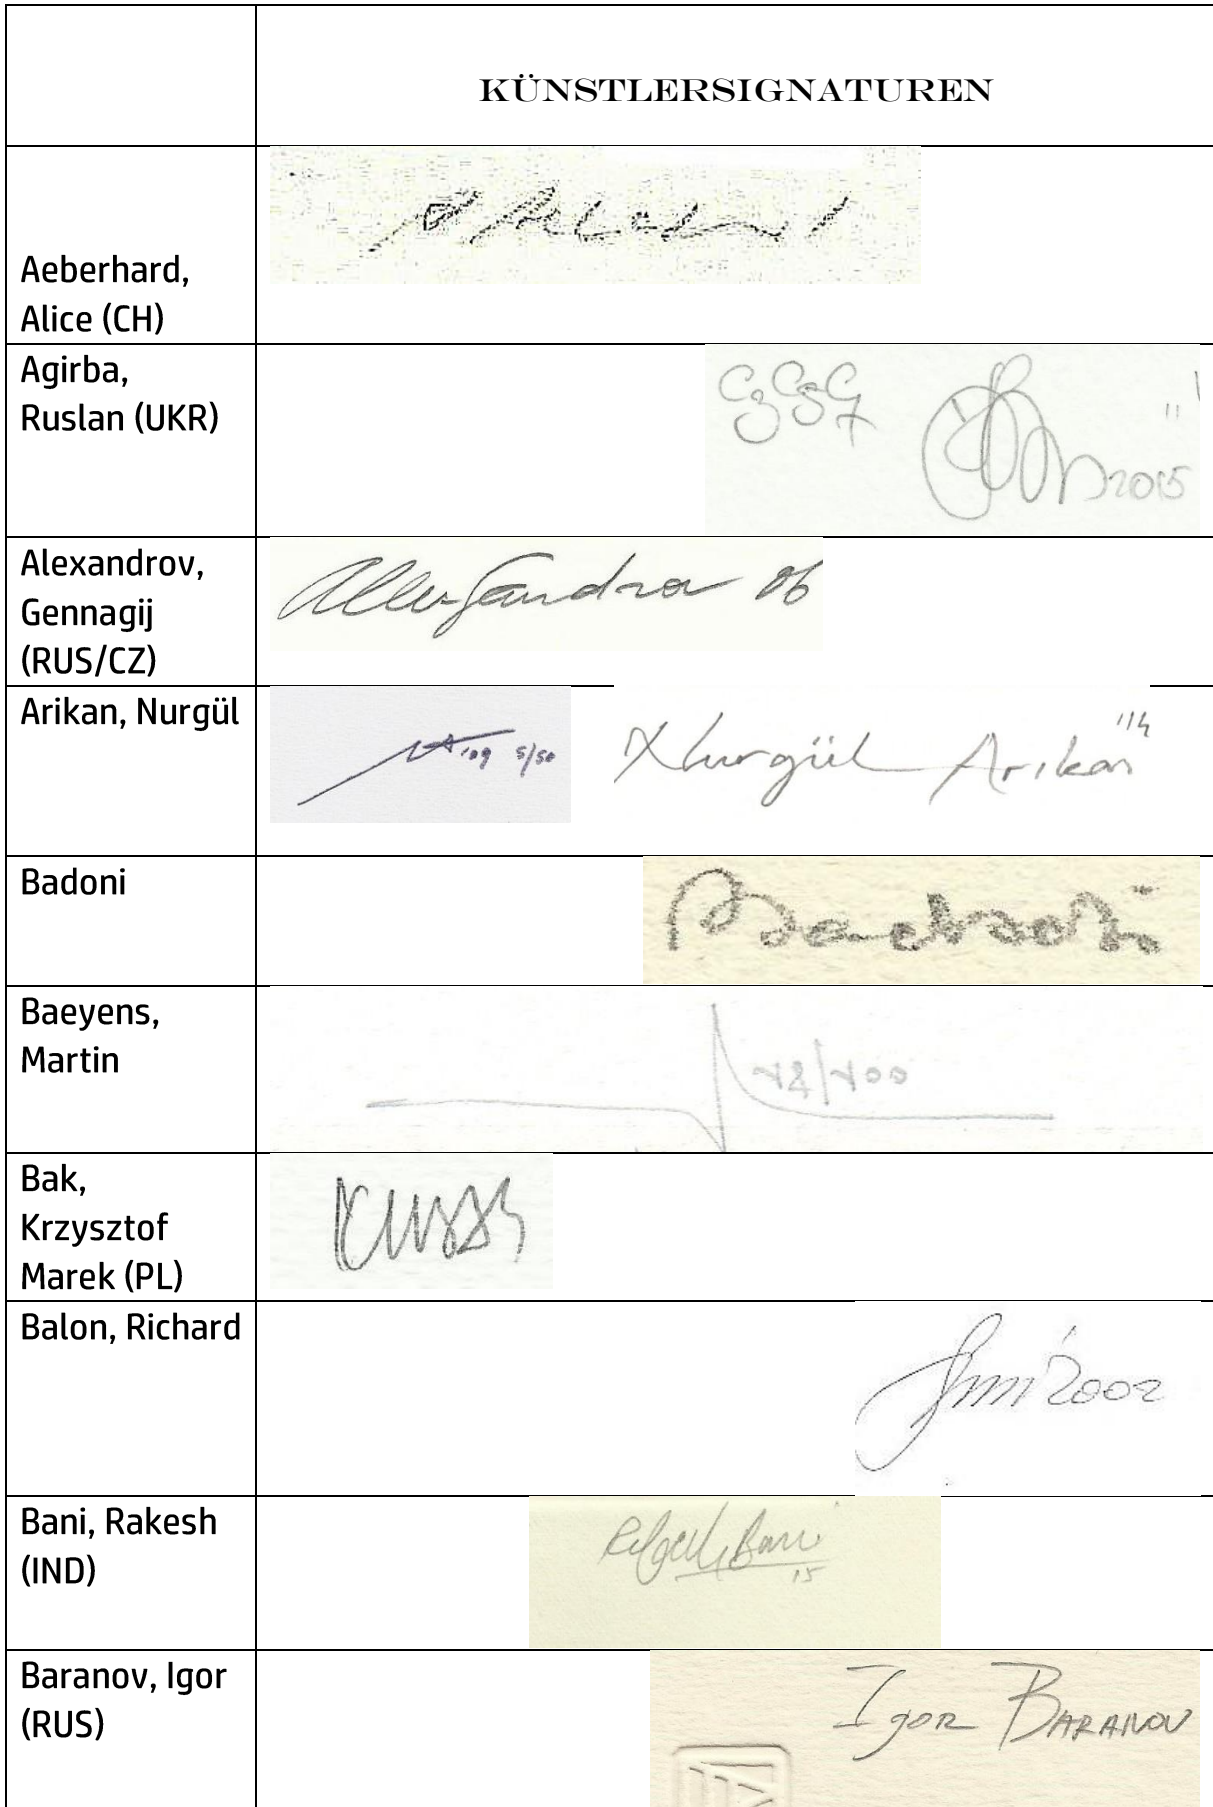 KÜNSTLERSIGNATUREN
Aeberhard,
Alice (CH)
Agirba,
Ruslan (UKR)
C3 C5 C7
2015
Alexandrov,
Gennagij
(RUS/CZ)
06
Arikan, Nurgül
'09 5/50
Nurgül Arikan "14
Badoni
Badoni
Baeyens,
Martin
/100
Bak,
Krzysztof
Marek (PL)
Balon, Richard
2002
Bani, Rakesh
(IND)
Bani
15
Baranov, Igor
(RUS)
IGOR BARANOV